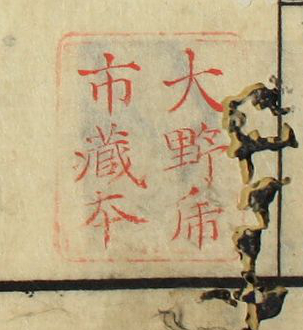 大野乕
市藏本